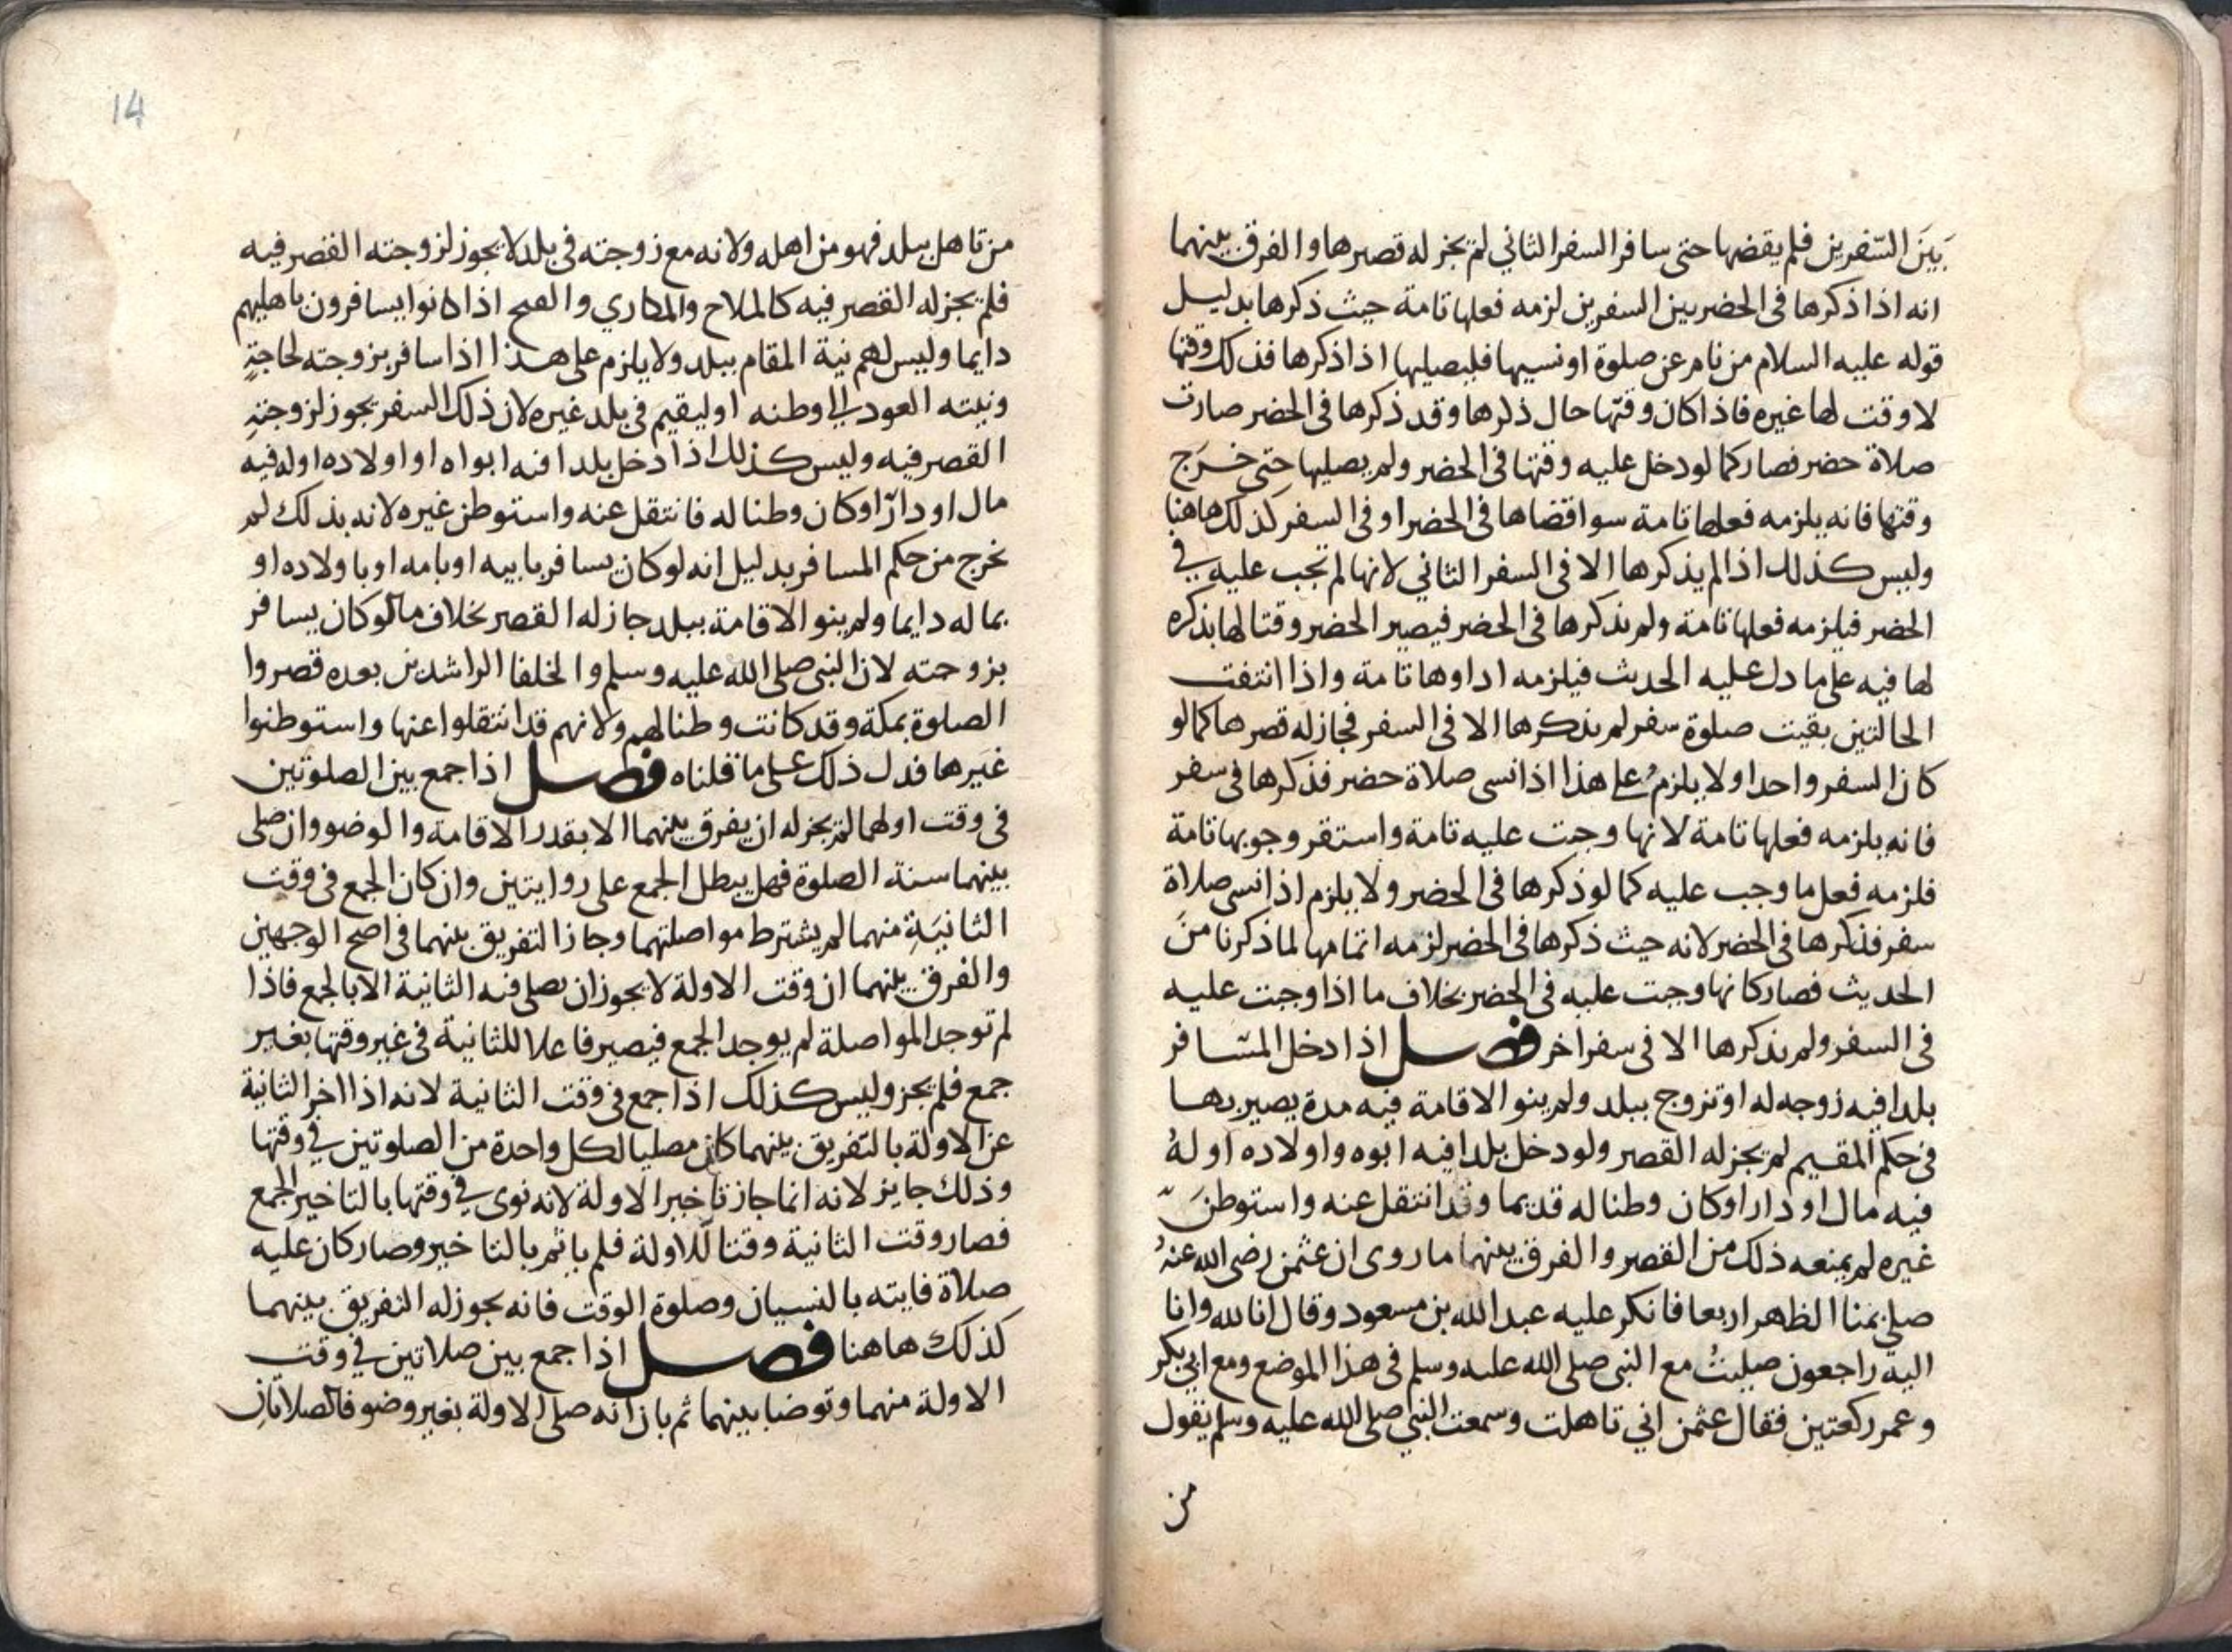 بَينَ السّفرين فلم يقضها حتى سافر السفر الثاني لم يجز له قصرها والفرق بينهما
انه اذا ذكرها في الحضر بين السفرين لزمه فعلها تامة حيث ذكرها بدليل
قوله عليه السلام من نام عن صلوة او نسيها فليصليها اذا ذكرها فذلك وقتها
لا وقت لها غيره فاذا كان وقتها حال ذكرها وقد ذكرها في الحضر صارت
صلاة حضر فصار كما لو دخل عليه وقتها في الحضر ولم يصليها حتى خرَج
وقتها فانه يلزمه فعلها تامة سوا قضاها في الحضر او في السفر كذلك هاهنا
وليس كذلك اذا لم يذكرها الا في السفر الثاني لانها لم تجب عليه في
الحضر فيلزمه فعلها تامة ولم يذكرها في الحضر فيصير الحضر وقتا لها بذكره
لها فيه على ما دل عليه الحديث فيلزمه اداوها تامة واذا انتفت
الحالتين بقيت صلوة سفر لم يذكرها الا في السفر فجاز له قصرها كما لو
كان السفر واحدا ولا يلزم على هذا اذا نسى صلاة حضر فذكرها في سفر
فانه يلزمه فعلها تامة لانها وجبت عليه تامة واستقر وجوبها تامة
فلزمه فعل ما وجب عليه كما لو ذكرها في الحضر ولا يلزم اذا نسى صلاة
سفر فذكرها في الحضر لانه حيث ذكرها في الحضر لزمه اتمامها لما ذكرنا منَ
الحديث فصار كانها وجبت عليه في الحضر بخلاف ما اذا وجبت عليه
في السفر ولم يذكرها الا في سفر اخر فصل اذا دخل المسَافر
بلدا فيه زوجه له او تزوج ببلد ولم ينو الاقامة فيه مدة يصير بها
في حكم المقيم لم يجز له القصر ولو دخل بلدا فيه ابوه واولاده او لهُ
فيه مال او دار او كان وطنا له قديما وقد انتقل عنه واستوطنَ
غيره لم يمنعه ذلك من القصر والفرق بينهما ما روى ان عثمن رضى الله عنهُ
صلى بمنا الظهر اربعا فانكر عليه عبد الله بن مسعود وقال انا لله وانا
اليه راجعون صليتُ مع النبي صلى الله عليه وسلم في هذا الموضع ومع ابي بكر
وعمر ركعتين فقال عثمن اني تاهلت وسمعت النبي صلى الله عليه وسلم يقول
من
14
من تاهل ببلد فهو من اهله ولانه مع زوجته في بلد لا يجوز لزوجته القصر فيه
فلم يجز له القصر فيه كالملاح والمكاري والفيج اذا كانوا يسافرون باهليهم
دايما وليس لهم نية المقام ببلد ولا يلزم على هذا اذا سافر بزوجته لحاجةٍ
ونيته العود الى وطنه او ليقيم في بلد غيره لان ذلك السفر يجوز لزوجتهِ
القصر فيه وليس كذلك اذا دخل بلدا فيه ابواه او اولاده او له فيه
مال او دارٌ او كان وطنا له فانتقل عنه واستوطن غيره لانه بذلك لم
يخرج من حكم المسافر بدليل انه لو كان يسافر بابيه او بامه او باولاده او
بماله دايما ولم ينو الاقامة ببلد جاز له القصر بخلاف ما لو كان يسافر
بزوجته لان النبي صلى الله عليه وسلم والخلفا الراشدين بعده قصروا
الصلوة بمكة وقد كانت وطنا لهم ولانهم قد انتقلوا عنها واستوطنوا
غيَرها فدل ذلك على ما قلناه فصل اذا جمع بين الصلوتين
في وقت اولهما لم يجز له ان يفرق بينهما الا بقدر الاقامة والوضو وان صلى
بينهما سنة الصلوة فهل يبطل الجمع على روايتين وان كان الجمع في وقت
الثانيَةِ منهما لم يشترط مواصلتهما وجاز التفريق بينهما في اصح الوجهين
والفرق بينهما ان وقت الاولة لا يجوز ان يصلى فيه الثانية الا بالجمع فاذا
لم توجد المواصلة لم يوجد الجمع فيصير فاعلا للثانية في غير وقتها بغير
جمع فلم يجز وليس كذلك اذا جمع في وقت الثانية لانه اذا اخر الثانية
عن الاولة بالتفريق بينهما كان مصليا لكل واحدة من الصلوتين في وقتها
وذلك جايز لانه انما جاز تاخير الاولة لانه نوى في وقتها بالتاخير الجمع
فصار وقت الثانية وقتا للاولة فلم ياثم بالتاخير وصار كان عليه
صلاة فايته بالنسيان وصلوة الوقت فانه يجوز له التفريق بينهما
كذلك هاهنا فصل اذا جمع بين صلاتين في وقت
الاولة منهما وتوضا بينهما ثم بان انه صلى الاولة بغير وضو فالصلاتان